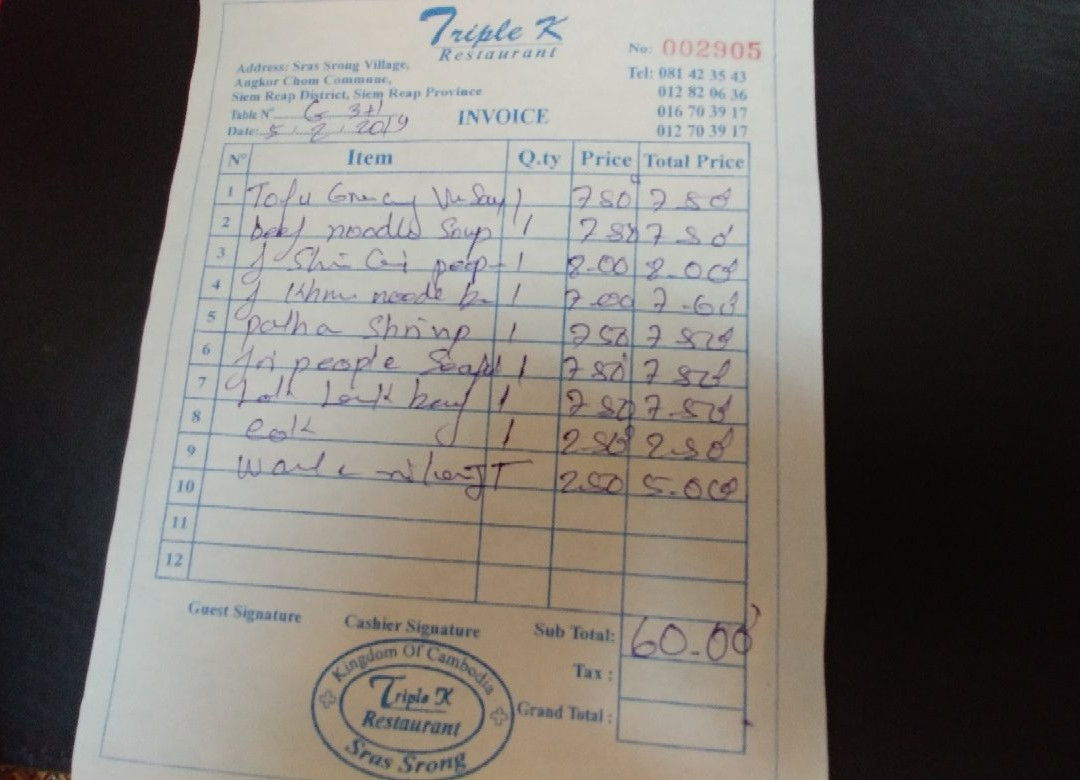 Triple K
Restaurant
No: 002905
Address: Sras Srong Village,
Angkor Chom Commune,
Siem Reap District, Siem Reap Province
Tel: 081 42 35 43
012 82 06 36
016 70 39 17
012 70 39 17
Table N° G 3+1
Date: 5 / 2 / 2019
INVOICE
N° Item Q.ty Price Total Price
1 Tofu 1 7.50 7.50
2 beef noodle Soup 1 7.50 7.50
3 1 8.00 8.00
4 noode 1 7.00 7.00
5 Shrinp 1 7.50 7.50
6 people 1 7.50 7.50
7 1 7.50 7.50
8 1 2.50 2.50
9 2.50 5.00
10
11
12
Guest Signature
Cashier Signature
Sub Total: 60.00
Tax :
Grand Total :
Kingdom Of Cambodia
Triple K
Restaurant
Sras Srong